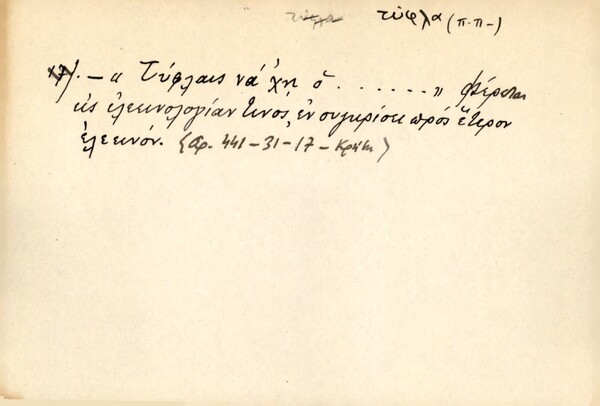 τύφλα τύφλα (π.π-)
17). – « Τύφλαις νά 'χῃ ὁ . . . . . . . » Φέρεται
εἰς ἐλεεινολογίαν τινός, ἐν συγκρίσει πρός ἕτερον
ἐλεεινόν. (Αρ. 441-31-17- Κρήτη)